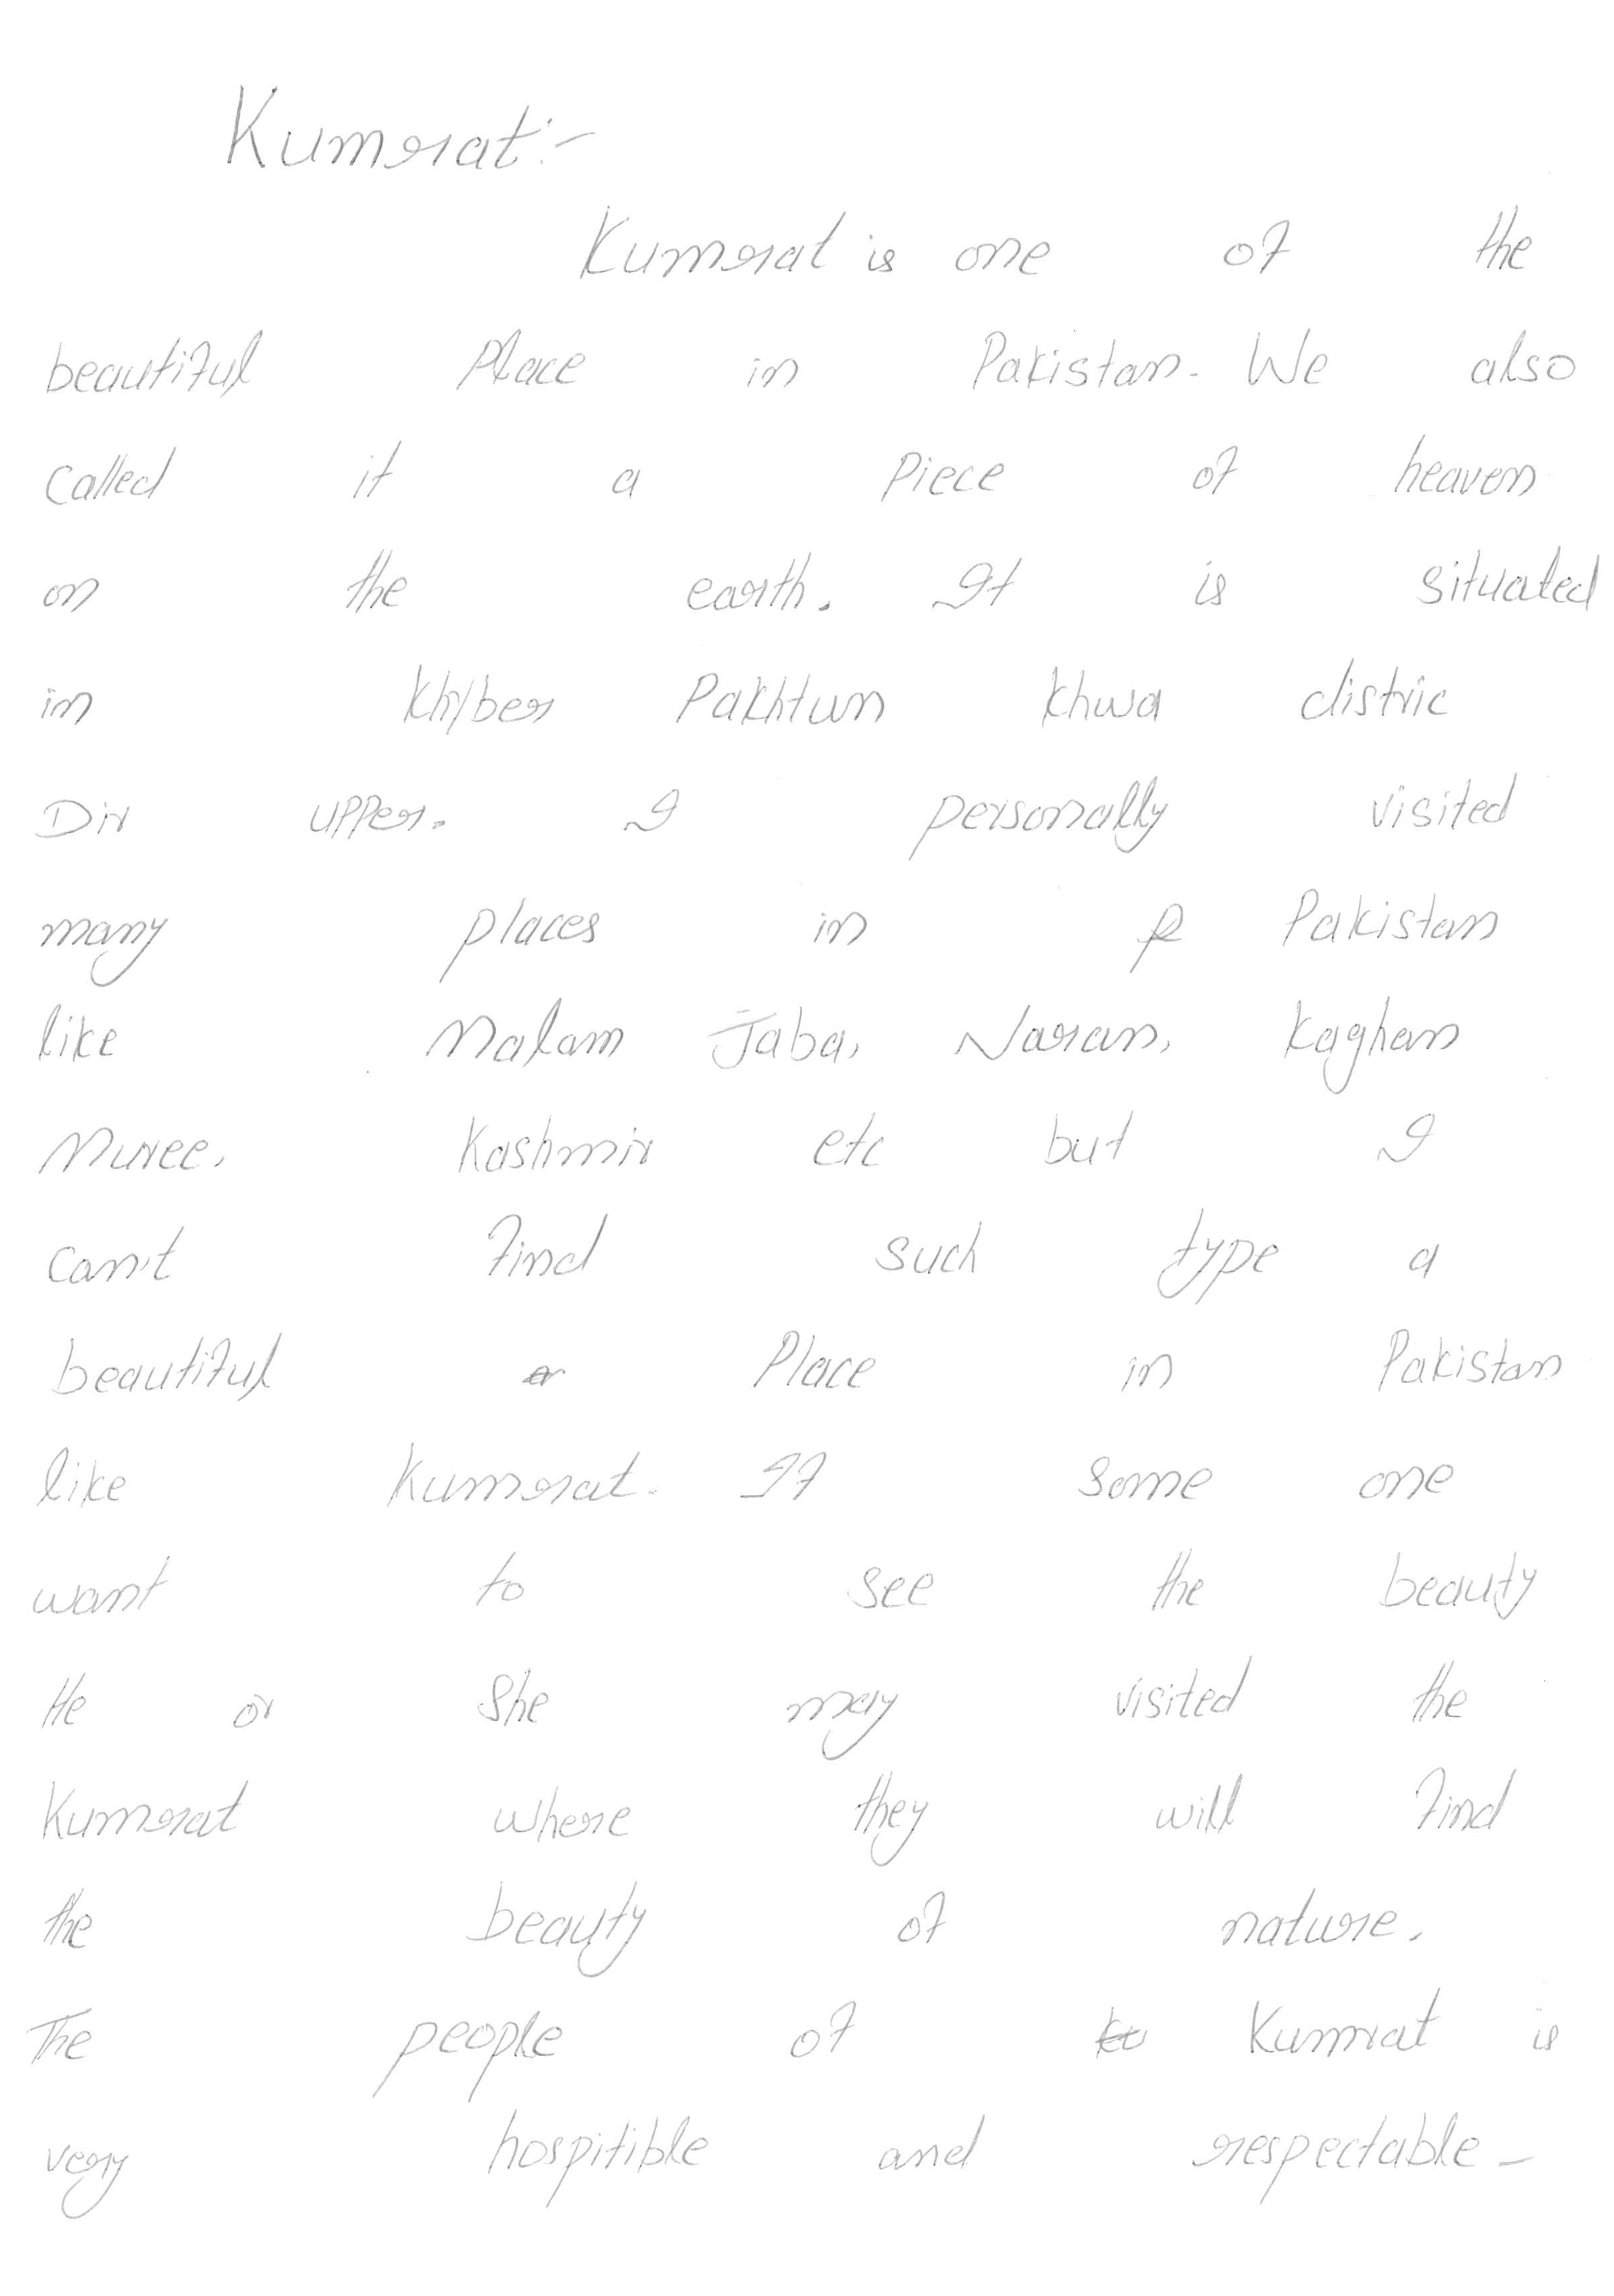 Kumrat:-
Kumrat is one of the
beautiful Place in Pakistan. We also
Called it a Piece of heaven
on the earth. It is situated
in Khyber Pakhtun khwa distric
Dir upper. I personally visited
many places in Pakistan
like Malam Jaba, Naran, Kaghan
Murree, Kashmir etc but I
can't find such type a
beautiful Place in Pakistan
like Kumrat. If some one
want to see the beauty
He or She may visited the
Kumrat where they will find
the beauty of nature.
The people of Kumrat is
very hospitible and respectable-